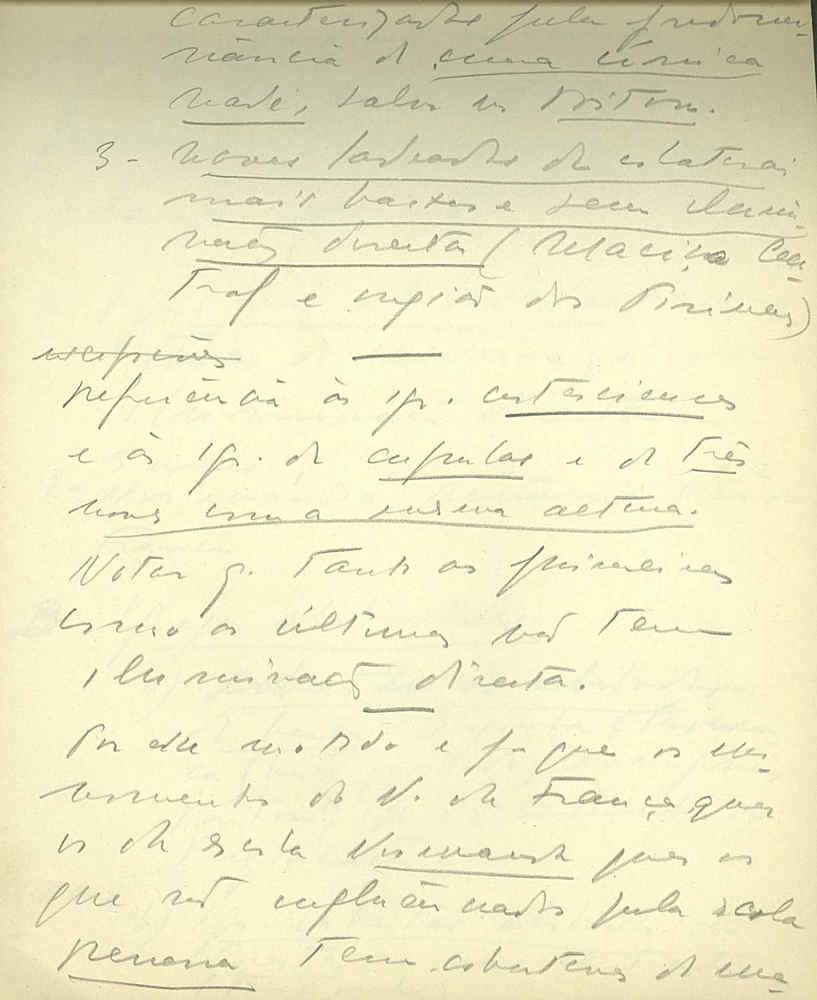 caracterizadas pela predomi-
nância de uma única
nave, salvo no Poitou.
3 - naves ladeadas de colaterais
mais baixas e sem ilumi-
nação directa (Maciço Cen-
tral e região dos Pirineus)
excepções
Referência às igr. cistercienses
e às igr. de cupulas e de três
naves com a mesma altura.
Notar q. tanto as primeiras
como as últimas não tem
iluminação directa.
Por este motivo e porque os mo-
numentos do N. de França, quer
os da escola Normanda quer os
que são influênciados pela escola
renana tem coberturas de ma-